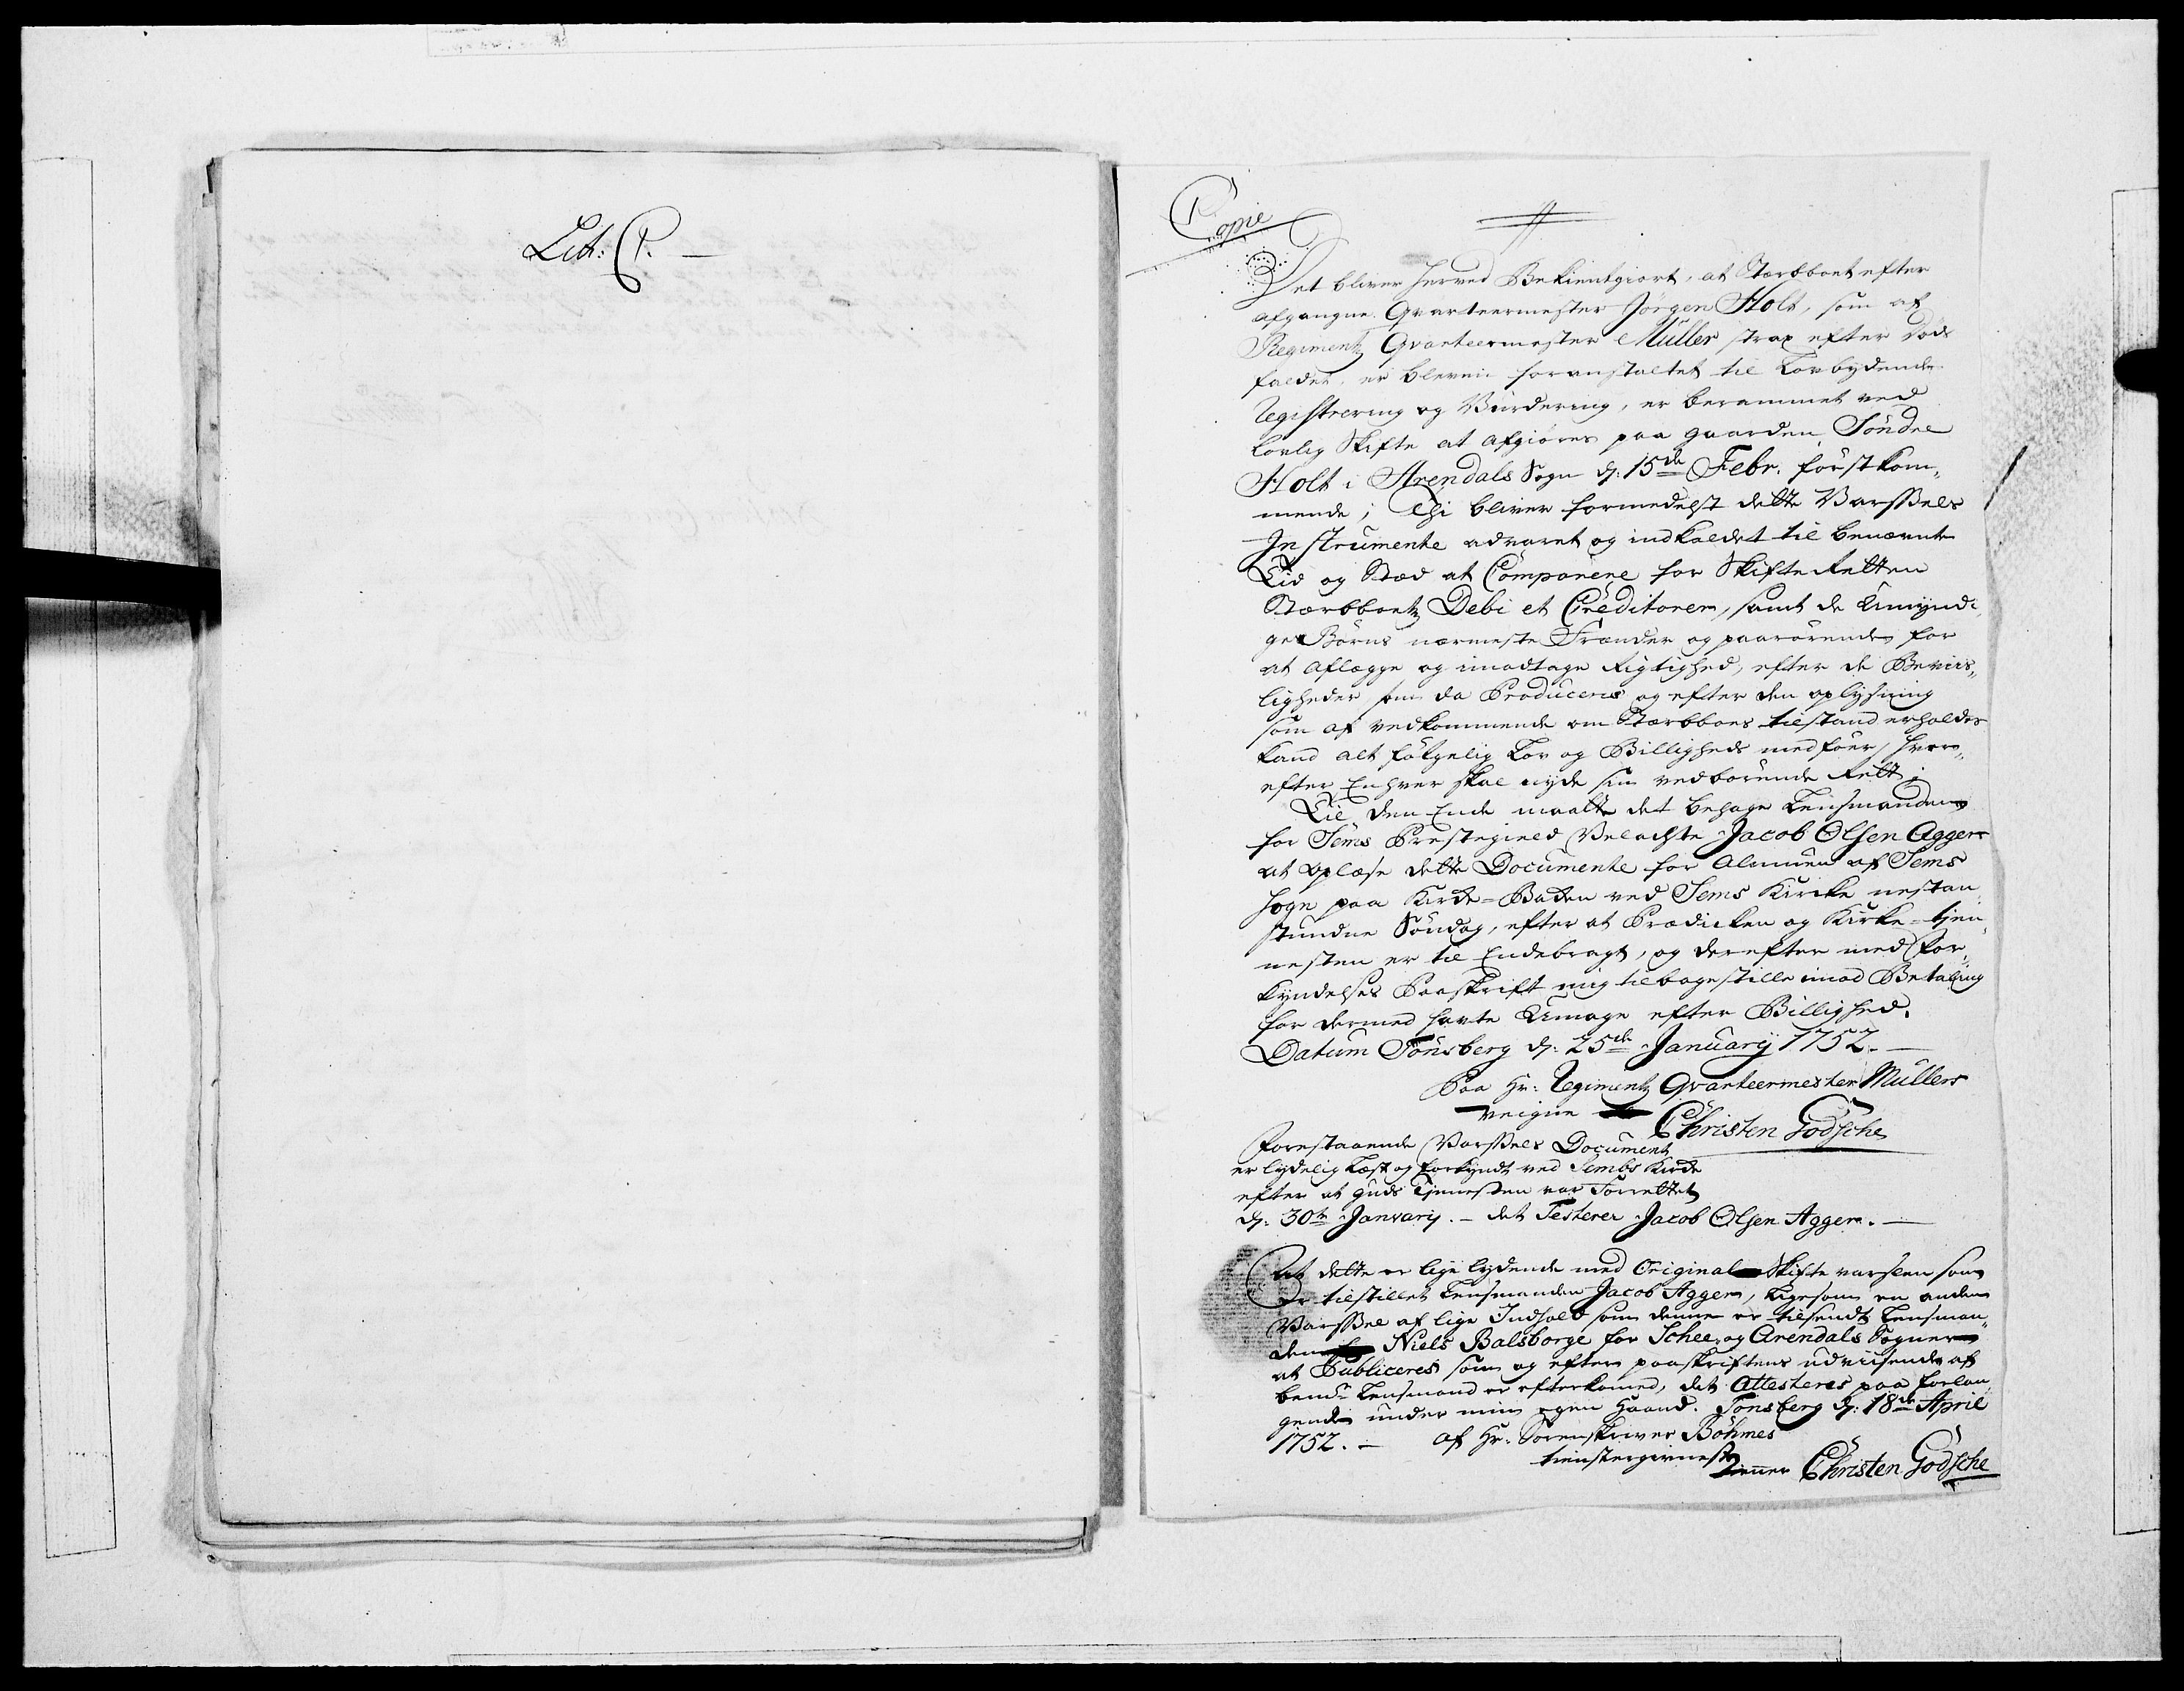 Lit: C. —
Copie
Det bliver herved Bekientgiort, at Stærbboet efter
afgangne Qvarteermester Jörgen Holt, som af
Regimentz Qvarteermester Müller strax efter döds
faldet, er bleven foranstaltet til Lovbydende
Registrering og Vurdering, er berammet ved
lovlig Skifte at afgiöres paa gaarden Söndre
Holt i Arendals Sogn d: 15de Febr. förstkom„
mende; Thi bliver formedelst dette Varssels
Instrumente advaret og indkaldet til benævnte
Tid og Stæd at Comparere for Skifte Retten
Stærbboetz Debi et Creditorer, samt de Umyndi„
ges Börns nærmeste Frænder og paarörende for
at aflægge og imodtage Rigtighed, efter de Beviis„
ligheder som da Produceres og efter den oplysning
som af vedkommende om Stærbboes tilstand erholdes
kand alt fölgelig Lov og Billigheds medföer, hvor„
efter Enhver skal nyde sin vedbörende Rett;
Til den Ende maatte det behage Lensmanden
for Sems Prestegield Velachte Jacob Olsen Aggers
at oplæse dette Documente for Almuen af Sems
Sogn paa Kirke=Bakken ved Sems Kircke nestan„
stundne Söndag, efter at Prædicken og Kirke=tien„
nesten er til Endebragt, og derefter med For„
kyndelses Paaskrift mig tilbagestille imod Betaling
for dermed hafte Umage efter Billighed.
Datum Tönsberg d: 25de January 1752. —
Paa Hr: Regimentz Qvarteermester Müllers
veigne Christen Godsche
Forestaaende Varssels Document
er lydelig Læst og forkyndt ved Sembs Kirke
efter at Guds Tjenesten var Forrettet
d: 30te January. — det Testerer Jacob Olsen Aggers. —
At dette er lige lydende med Original Skifte varselen som
er tilstillet Lensmanden Jacob Aggers, ligesom en anden
Varssel af lige Indhold som denne er tilsendt Lensman„
den Niels Balsborge for Schee og Arendals Sogner
at Publiceres som og efter paaskriftens udviisende af
bemte Lensmand er efterkomed, det Attesteres paa forlan„
gende under min egen Haand. Tonsberg d: 18de April
1752. — af Hr: Sorenskriver Böhmes
tienstergivneste
Tienner Christen Godsche